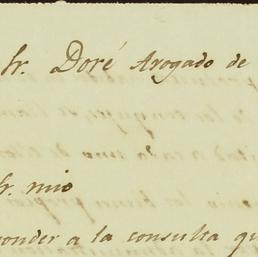 Sr. Doré Avogado de
Sr. mio
ponder a la consulta qu